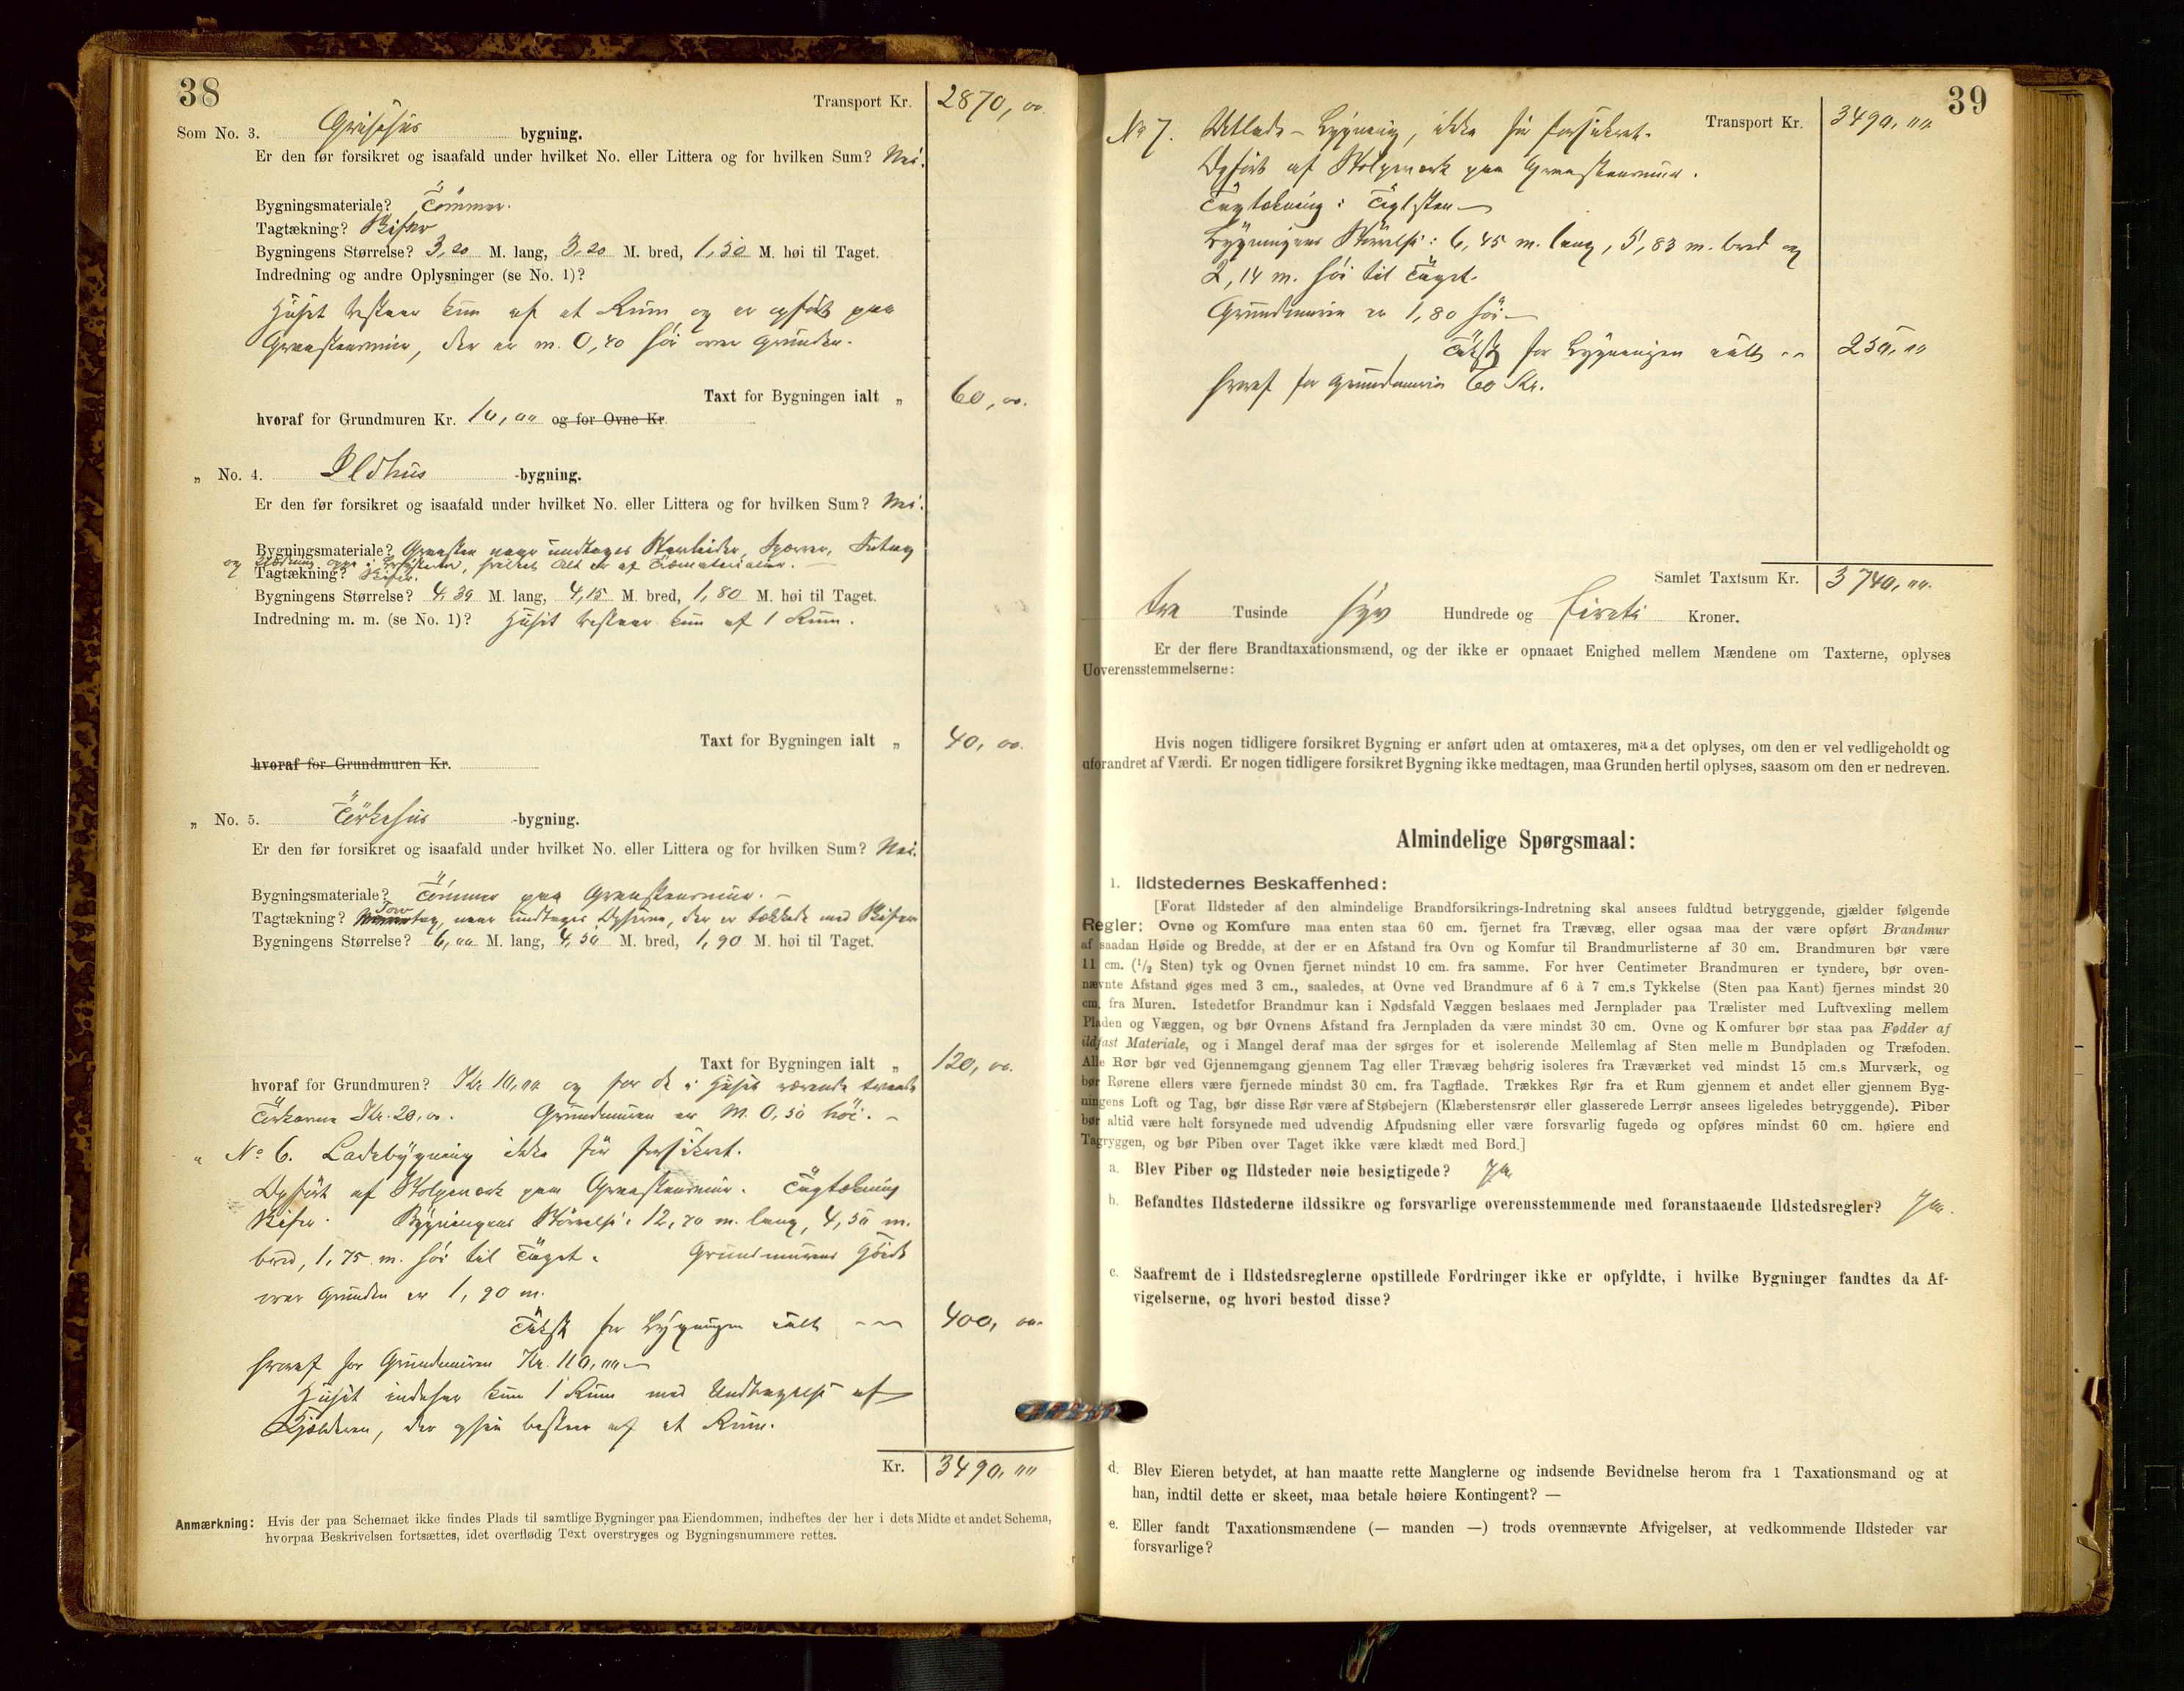 38
Transport Kr. 2870,00.
Som No. 3. Grisehus bygning.
Er den før forsikret og isaafald under hvilket No. eller Littera og for hvilken Sum? Nei.
Bygningsmateriale? Tömmer.
Tagtækning? Skifer
Bygningens Størrelse? 3,20 M. lang, 3,20 M. bred, 1,50 M. høi til Taget.
Indredning og andre Oplysninger (se No. 1)?
Huset bestaar kun af et Rum og er opført paa
Graastensmur, der er m. 0,40 høi over Grunden.
Taxt for Bygningen ialt „ 60,00.
hvoraf for Grundmuren Kr. 10,00 og for Ovne Kr.
„ No. 4. Ildhus -bygning.
Er den før forsikret og isaafald under hvilket No. eller Littera og for hvilken Sum? Nei.
Bygningsmateriale? Graasten naar undtages Sperrer,
og i, hvilket Alt er af Træmaterialer.
Tagtækning? Skifer.
Bygningens Størrelse? 4,39 M. lang, 4,15 M. bred, 1,80 M. høi til Taget.
Indredning m. m. (se No. 1)? Huset bestaar kun af 1 Rum.
Taxt for Bygningen ialt „ 40,00.
hvoraf for Grundmuren Kr.
„ No. 5. Törkehus -bygning.
Er den før forsikret og isaafald under hvilket No. eller Littera og for hvilken Sum? Nei.
Bygningsmateriale? Tömmer paa Graastensmur. –
Tagtækning? Torvtag, naar undtages, der er tækket med Skifer
Bygningens Størrelse? 6,00 M. lang, 4,50 M. bred, 1,90 M. høi til Taget.
Taxt for Bygningen ialt „ 120,00.
hvoraf for Grundmuren? Kr. 10,00 og for de i Huset værende
Kr. 20,00. Grundmuren er M. 0,50 høi. –
„ No 6. Ladebygning ikke før forsikret.
Opført af Stolpverk paa Graastensmur. Tagtækning
Skifer. Bygningens Størrelse: 12,70 m. lang, 4,50 m.
bred, 1,75 m. høi til Taget. Grundmurens Høide
over Grunden er 1,90 m.
Takst for Bygningen ialt 400,00.
hvoraf for Grundmuren Kr. 110,00
Huset indehar kun 1 Rum med Undtagelse af
Kjælderen, der ogsaa bestaar af et Rum.
Kr. 3490,00
Anmærkning: Hvis der paa Schemaet ikke findes Plads til samtlige Bygninger paa Eiendommen, indheftes der her i dets Midte et andet Schema,
hvorpaa Beskrivelsen fortsættes, idet overflødig Text overstryges og Bygningsnummere rettes.
39
Transport Kr. 3490,00.
No 7. Utlade-Bygning, ikke før forsikret.
Opført af Stolpverk paa Graastensmur.
Tagtækning: Taglsten
Bygningens Størrelse: 6,45 m. lang, 5,83 m. bred og
2,14 m. høi til Taget.
Grundmuren er 1,80 høi
Takst for Bygningen ialt 250,00
hvoraf for Grundmuren 60 Kr.
Samlet Taxtsum Kr. 3740,00.
tre Tusinde syv Hundrede og fireti Kroner.
Er der flere Brandtaxationsmænd, og der ikke er opnaaet Enighed mellem Mændene om Taxterne, oplyses
Uoverensstemmelserne:
Hvis nogen tidligere forsikret Bygning er anført uden at omtaxeres, maa det oplyses, om den er vel vedligeholdt og
uforandret af Værdi. Er nogen tidligere forsikret Bygning ikke medtagen, maa Grunden hertil oplyses, saasom om den er nedreven.
Almindelige Spørgsmaal:
1. Ildstedernes Beskaffenhed:
[Forat Ildsteder af den almindelige Brandforsikrings-Indretning skal ansees fuldtud betryggende, gjælder følgende
Regler: Ovne og Komfure maa enten staa 60 cm. fjernet fra Trævæg, eller ogsaa maa der være opført Brandmur
af saadan Høide og Bredde, at der er en Afstand fra Ovn og Komfur til Brandmurlisterne af 30 cm. Brandmuren bør være
11 cm. (1/2 Sten) tyk og Ovnen fjernet mindst 10 cm. fra samme. For hver Centimeter Brandmuren er tyndere, bør oven-
nævnte Afstand øges med 3 cm., saaledes, at Ovne ved Brandmure af 6 à 7 cm.s Tykkelse (Sten paa Kant) fjernes mindst 20
cm. fra Muren. Istedetfor Brandmur kan i Nødsfald Væggen beslaaes med Jernplader paa Trælister med Luftvexling mellem
Pladen og Væggen, og bør Ovnens Afstand fra Jernpladen da være mindst 30 cm. Ovne og Komfurer bør staa paa Fødder af
ildfast Materiale, og i Mangel deraf maa der sørges for et isolerende Mellemlag af Sten mellem Bundpladen og Træfoden.
Alle Rør bør ved Gjennemgang gjennem Tag eller Trævæg behørig isoleres fra Træværket ved mindst 15 cm.s Murværk, og
bør Rørene ellers være fjernede mindst 30 cm. fra Tagflade. Trækkes Rør fra et Rum gjennem et andet eller gjennem Byg-
ningens Loft og Tag, bør disse Rør være af Støbejern (Klæberstensrør eller glasserede Lerrør ansees ligeledes betryggende). Piber
bør altid være helt forsynede med udvendig Afpudsning eller være forsvarlig fugede og opføres mindst 60 cm. høiere end
Tagryggen, og bør Piben over Taget ikke være klædt med Bord.]
a. Blev Piber og Ildsteder nøie besigtigede? Ja
b. Befandtes Ildstederne ildssikre og forsvarlige overensstemmende med foranstaaende Ildstedsregler? Ja.
c. Saafremt de i Ildstedsreglerne opstillede Fordringer ikke er opfyldte, i hvilke Bygninger fandtes da Af-
vigelserne, og hvori bestod disse?
d. Blev Eieren betydet, at han maatte rette Manglerne og indsende Bevidnelse herom fra 1 Taxationsmand og at
han, indtil dette er skeet, maa betale høiere Kontingent? —
e. Eller fandt Taxationsmændene (— manden —) trods ovennævnte Afvigelser, at vedkommende Ildsteder var
forsvarlige?